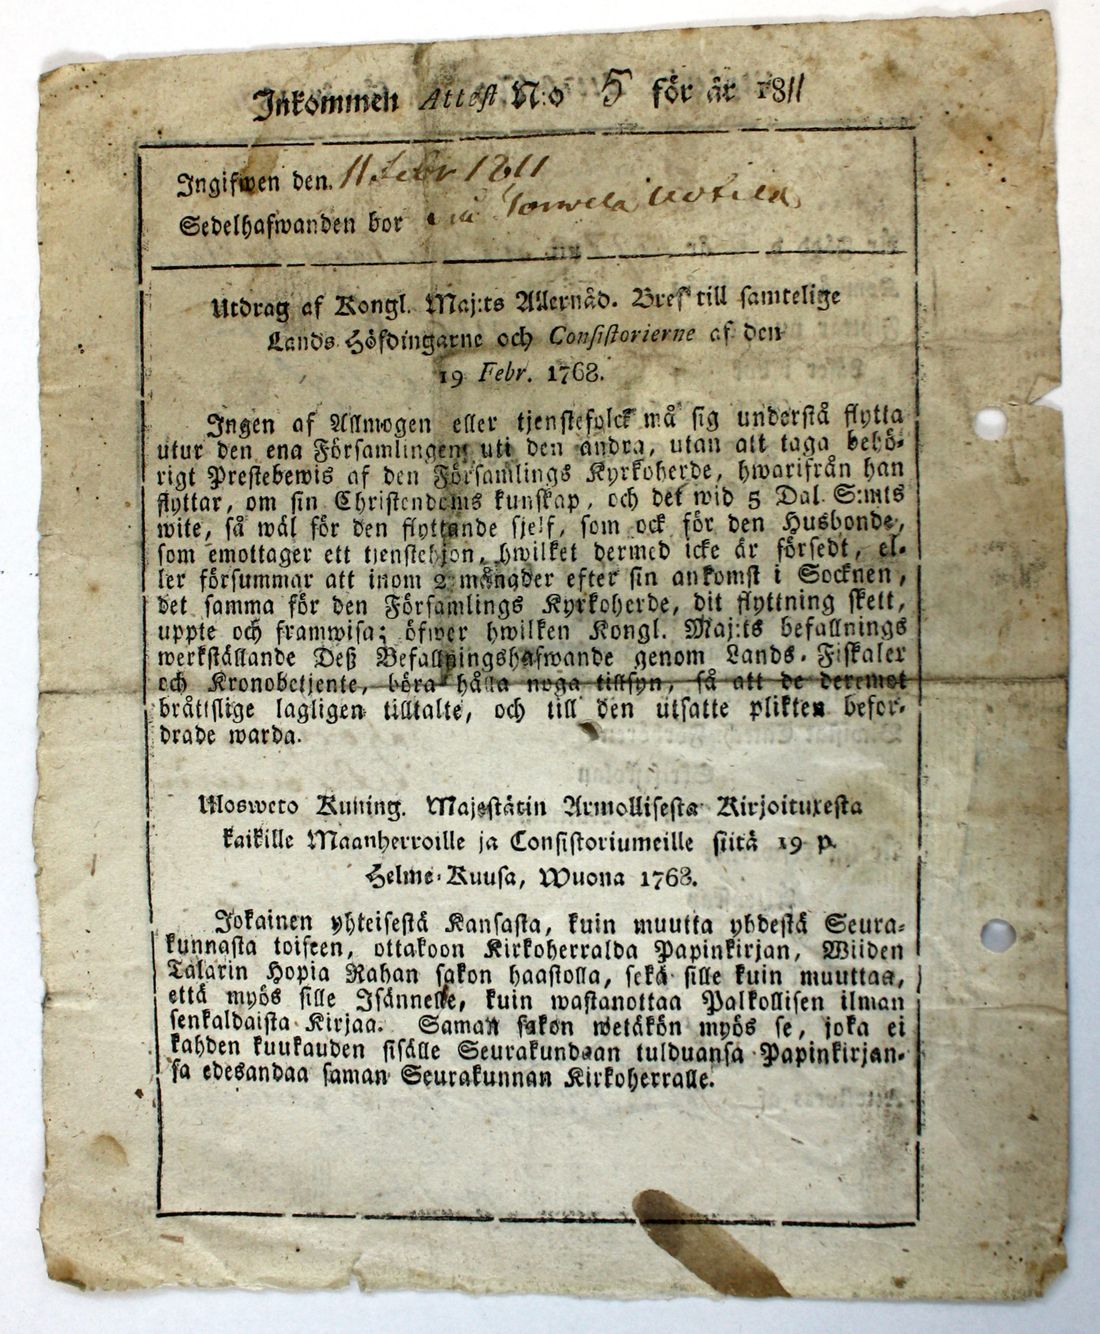 Inkommen Attest N:o 5 för år 1811
Ingifwen den. 11 Febr 1811
Sedelhafwanden bor
Utdrag af Kongl. Maj:ts Allernåd. Bref till samtelige
Lands Höfdingarne och Consistorierne af den
19 Febr. 1768.
Ingen af Allmogen eller tjenstefolck må sig understå flytta
utur den ena Församlingen uti den andra, utan att taga behö-
rigt Prestebewis af den Församlings Kyrkoherde, hwarifrån han
flyttar, om sin Christendoms kunskap, och det wid 5 Dal. S:mts
wite, så wäl för den flyttande sjelf, som ock för den Husbonde,
som emottager ett tjenstehjon, hwilket dermed icke är försedt, el-
ler försummar att inom 2 månader efter sin ankomst i Socknen,
det samma för den Församlings Kyrkoherde, dit flyttning skett,
uppte och framwisa; öfwer hwilken Kongl. Maj:ts befallnings
werkställande Deß Befallningshafwande genom Lands-Fiskaler
och Kronobetjente, böra hålla noga tillsyn, så att de deremot
bråttslige lagligen tilltalte, och till den utsatte plikten befor-
drade warda.
Ulosweto Kuning. Majestätin Armollisesta Kirjoituxesta
kaikille Maanherroille ja Consistoriumeille siitä 19 p.
Helme-Kuusa, Wuona 1768.
Jokainen yhteisestä Kansasta, kuin muutta yhdestä Seura-
kunnasta toiseen, ottakoon Kirkoherralda Papinkirjan, Wiiden
Talarin Hopia Rahan sakon haastolla, sekä sille kuin muuttaa,
että myös sille Isännelle, kuin wastanottaa Palkollisen ilman
senkaldaista Kirjaa. Saman sakon wetäkön myös se, joka ei
kahden kuukauden sisälle Seurakundaan tulduansa Papinkirjan-
sa edesandaa saman Seurakunnan Kirkoherralle.